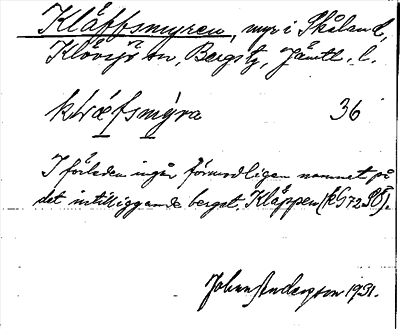 Kläffsmyren, myr i Skålan,
Klövsjö sn, Bergs tg, Jämtl. l.
klæfsmýra 36
I förleden ingår förmodligen namnet på
det intilliggande berget. Kläppen
Johan Anderson 1931.